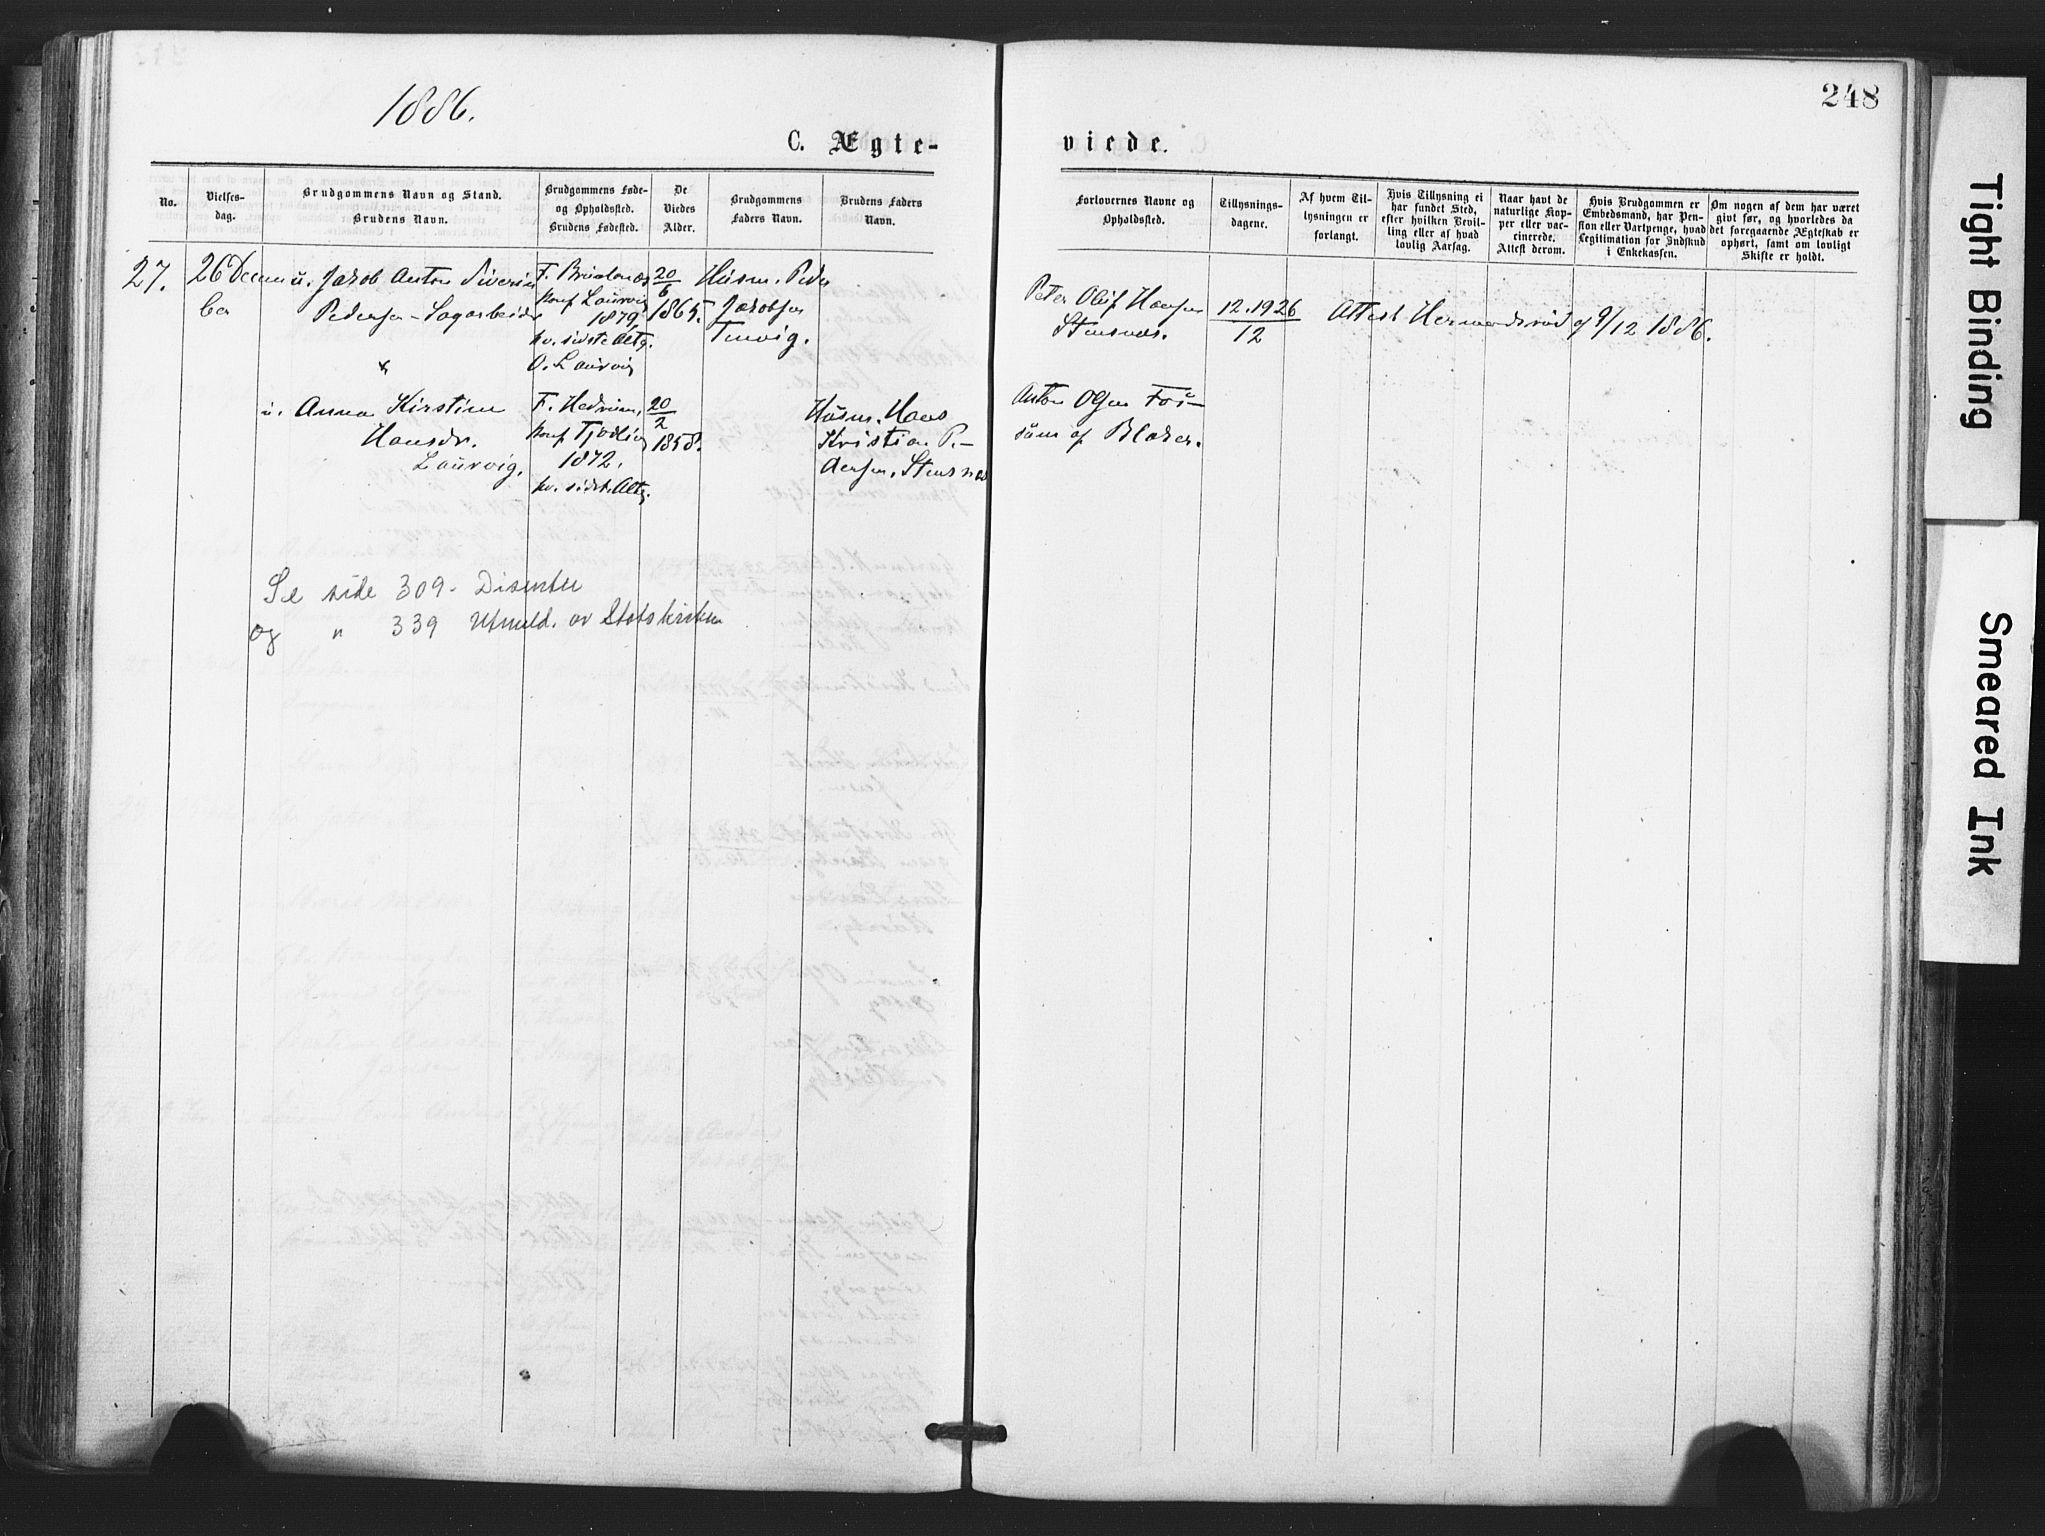 1886.
248
C. Ægte-
viede.
No.
Vielses-
dag.
Brudgommens Navn og Stand.
Brudens Navn.
Brudgommens Føde-
og Opholdssted.
Brudens Fødested.
De
Viedes
Alder.
Brudgommens
Faders Navn.
Brudens Faders
Navn.
Forlovernes Navne og
Opholdssted.
Tillysnings-
dagene.
Af hvem Til-
lysningen er
forlangt.
Hvis Tillysning ei
har fundet Sted,
efter hvilken Bevil-
ling eller af hvad
lovlig Aarsag.
Naar havt de
naturlige Kop-
per eller vac-
cinerede.
Attest derom.
Hvis Brudgommen er
Embedsmand, har Pen-
sion eller Vartpenge, hvad
Legitimation for Indskud
i Enkekassen.
Om nogen af dem har været
givt før, og hvorledes da
det foregaaende Ægteskab er
ophørt, samt om lovligt
Skifte er holdt.
27.
26 Decem
ber
u. Jakob Anton Siverin
Pedersen - Sagarbeider
&
F.
konf Laurvig
1879,
kv. sidste Altg.
O. Laurvig
20
6
1865.
Husm. Peder
Jakobsen
Peter Oluf Hansen
Stensnæs.
12.19 26
12
Attest Hermandsrød af 9/12 1886.
u. Anna Kirstine
Hansdr.
Laurvig.
F. Hedrum,
konf Tjodling
1872.
kv. sidst. Altg.
20
2
1858.
Husm. Hans
Kristian Pe-
dersen, Stensnæs
Anton Olsen
af
Se side 309 - Disenter
og " 339 Utmeld. av Statskirken
Tight Binding
Smeared Ink